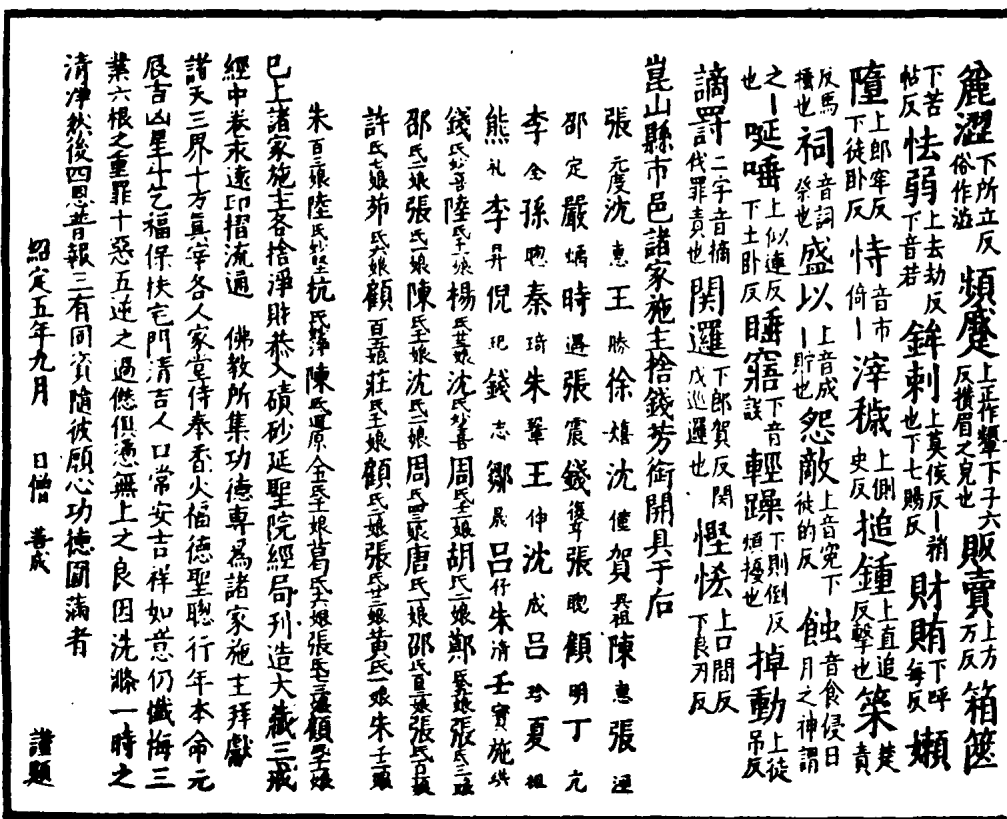 麁澀下所立反俗作澁 頻蹙上正作顰下子六反攢眉之皃也 販賣上方万反 箱篋
下苦帖反 怯弱上去劫反下音若 鉾刺上莫侯反丨矟也下七賜反 財賄下呼每反 嬾
墮上郎罕反下徒卧反 恃音市倚丨 滓穢上側史反 搥鍾上直追反擊也 築楚責
反馬檛也 祠音詞祭也 盛以上音成丨貯也 怨敵上音冤下徒的反 蝕音食侵日月之神謂
之丨也 唌唾上似連反下土卧反 睡寤下音誤 輕躁下則倒反煩擾也 掉動上徒吊反
謫罸二字音摘伐罪責也 関邏下郎賀反関戍巡邏也 慳悋上口間反下良刃反
崑山縣市邑諸家施主捨錢芳銜開具于后
張元度 沈惠 王勝 徐嬉 沈僮 賀異祖 陳惠 張迪
邵定 嚴燏 時遇 張震 錢復 張聰 顧明 丁亢
李全 孫聰 秦琦 朱鞏 王伸 沈成 呂珍 夏祖
熊礼 李昇 倪玘 錢志 鄒晟 呂仔 朱済 壬寶 施珙
錢氏妙善 陸氏十一娘 楊氏廿娘 沈氏妙喜 周氏二娘 胡氏二娘 鄭氏五娘 張氏三娘
邵氏二娘 張氏二娘 陳氏十娘 沈氏二娘 周氏四娘 唐氏一娘 邵氏百二娘 張氏百娘
許氏七娘 茆氏六娘 顧百二娘 莊氏十娘 顧氏二娘 張氏廿三娘 黄氏一娘 朱千二娘
朱百三娘 陸氏妙堅 杭氏淨 陳氏還原 金五十娘 葛氏六娘 張氏三娘 顧四娘
已上諸家施主各捨淨財恭入磧砂延聖院經局刋造大藏三戒
經中卷永遠印摺流通 佛教所集功德專為諸家施主拜獻
諸天三界十方真宰各人家堂侍奉香火福德聖聰行年本命元
辰吉凶星斗乞福保扶宅門清吉人口常安吉祥如意仍懺悔三
業六根之重罪十惡五逆之過愆俱憑無上之良因洗滌一時之
清凈然後四恩普報三有同資隨彼願心功德圓滿者
紹定五年九月 日僧 善成 謹題